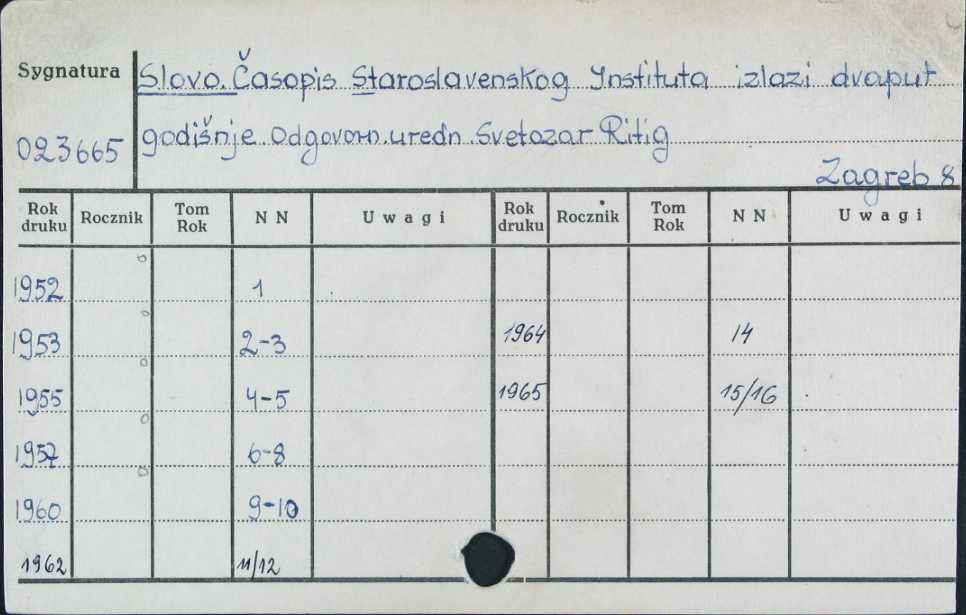 Sygnatura Slovo. Časopis Staroslavenskog Instituta izlazi dvaput
023665 godišnje. Odgovorn. uredn. Svetozar Ritig
Zagreb 8
Rok druku Rocznik Tom Rok NN Uwagi Rok druku Rocznik Tom Rok NN Uwagi
1952 1
1953 2-3 1964 14
1955 4-5 1965 15/16
1957 6-8
1960 9-10
1962 11/12